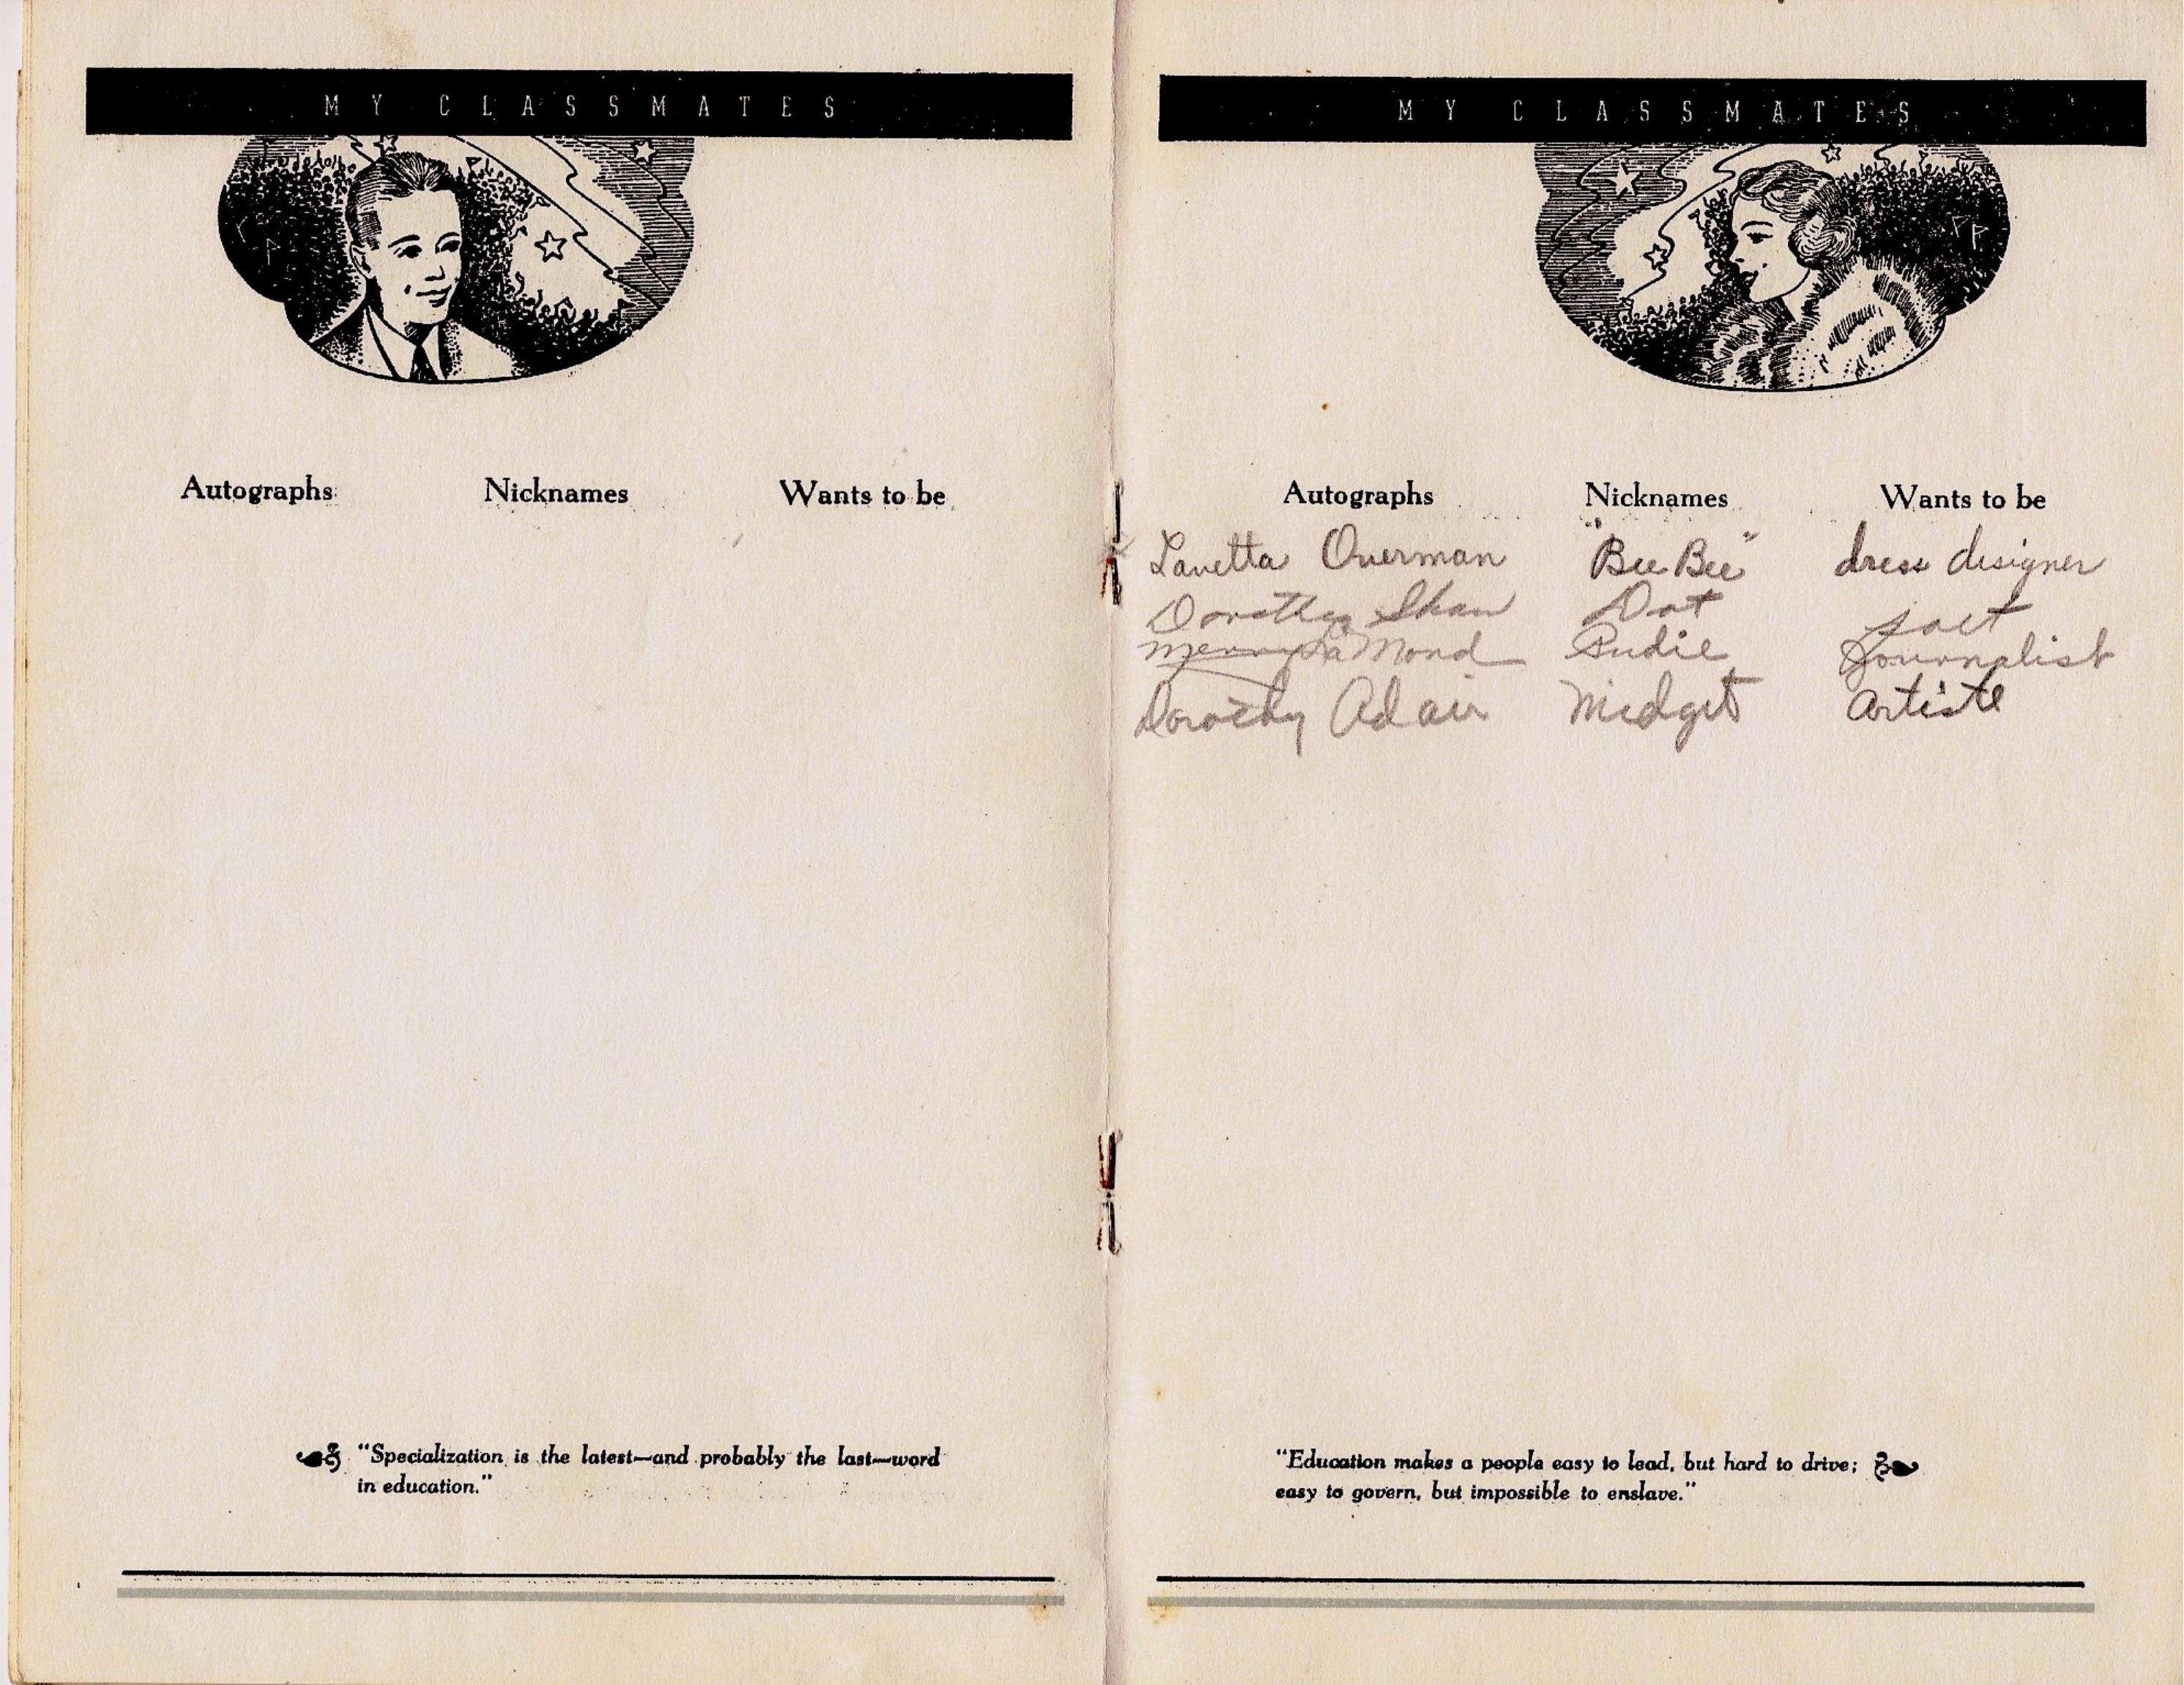 MY CLASSMATES
Autographs Nicknames Wants to be
"Specialization is the latest—and probably the last—word
in education."
MY CLASSMATES
Autographs Nicknames Wants to be
Lavetta Overman "Bee Bee" dress designer
Dorothy Shaw Dot poet
Merry La Mond Rudie Journalist
Dorothy Adair Midget Artiste
"Education makes a people easy to lead, but hard to drive;
easy to govern, but impossible to enslave."